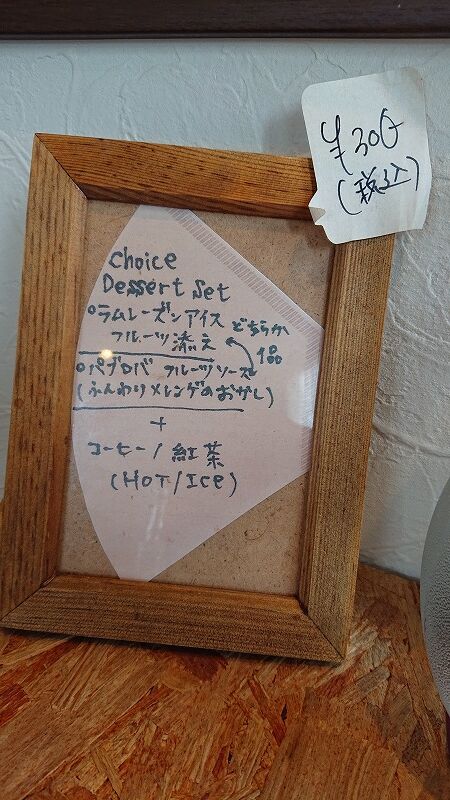 ¥300
(税込)
choice
Dessert Set
○ラムレーズンアイス どちらか
フルーツ添え 1品
○パブロバ フルーツソース
(ふんわりメレンゲのおかし)
+
コーヒー/紅茶
(HOT/Ice)